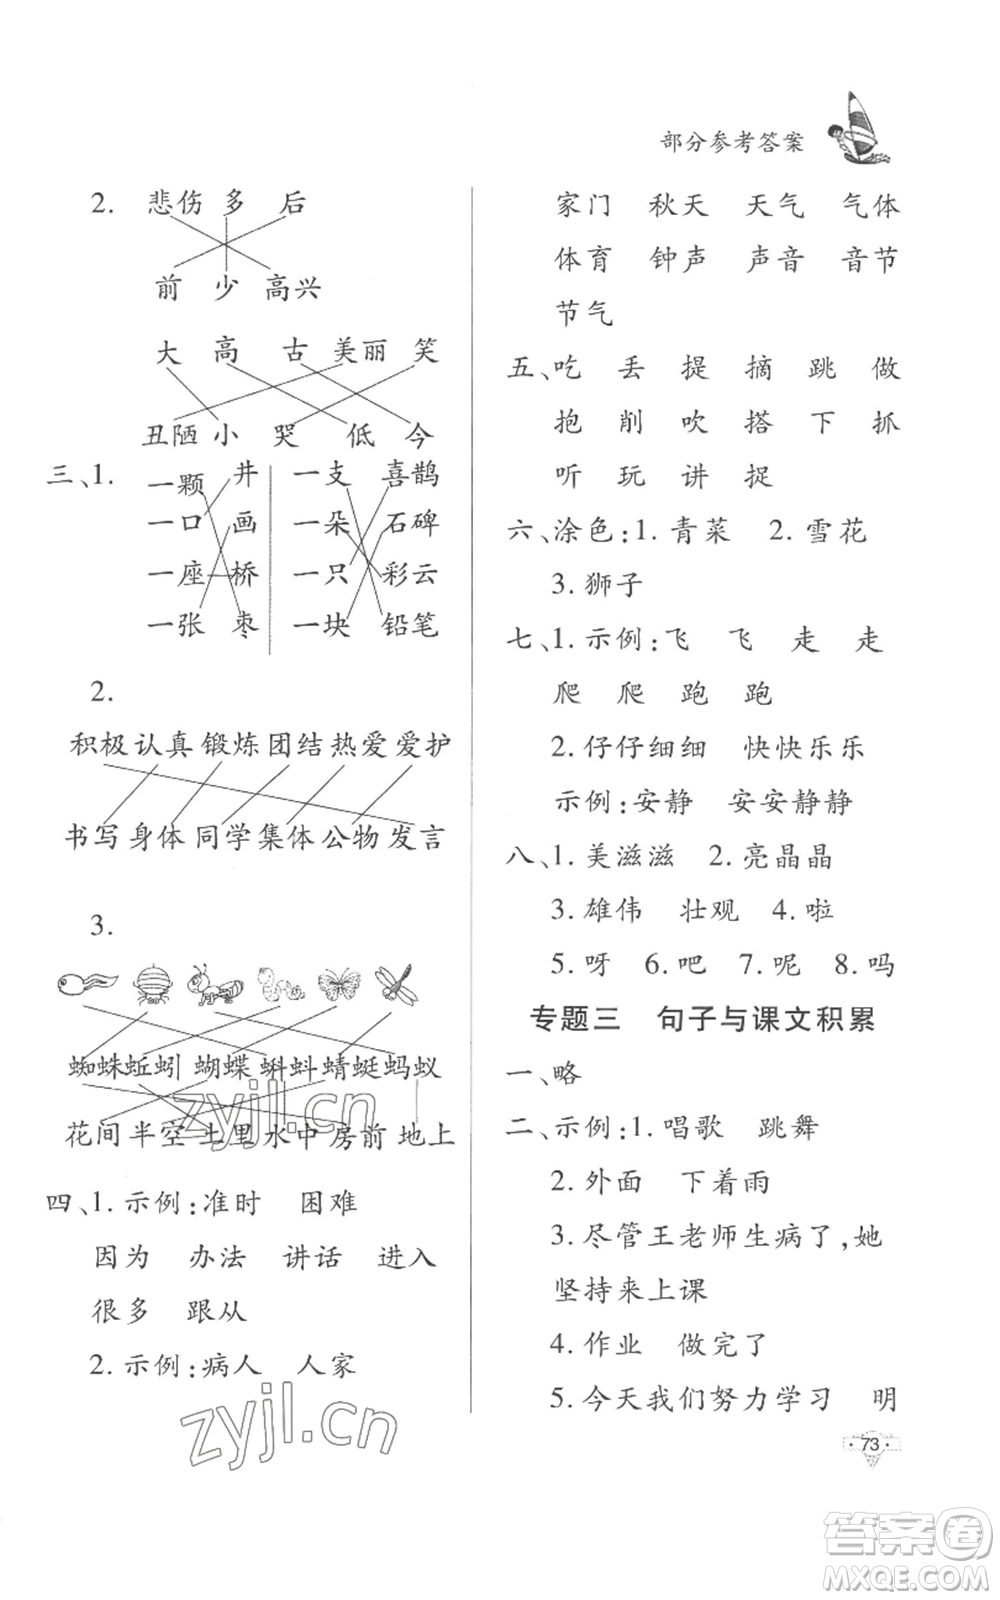 部分参考答案
2. 悲伤 多 后
前 少 高兴
大 高 古 美丽 笑
丑陋 小 哭 低 今
三、1. 一颗 井 一支 喜鹊
一口 画 一朵 石碑
一座 桥 一只 彩云
一张 枣 一块 铅笔
2.
积极 认真 锻炼 团结 热爱 爱护
书写 身体 同学 集体 公物 发言
3.
蜘蛛 蚯蚓 蝴蝶 蝌蚪 蜻蜓 蚂蚁
花间 半空 土里 水中 房前 地上
四、1. 示例:准时 困难
因为 办法 讲话 进入
很多 跟从
2. 示例:病人 人家
家门 秋天 天气 气体
体育 钟声 声音 音节
节气
五、吃 丢 提 摘 跳 做
抱 削 吹 搭 下 抓
听 玩 讲 捉
六、涂色:1. 青菜 2. 雪花
3. 狮子
七、1. 示例:飞 飞 走 走
爬 爬 跑 跑
2. 仔仔细细 快快乐乐
示例:安静 安安静静
八、1. 美滋滋 2. 亮晶晶
3. 雄伟 壮观 4. 啦
5. 呀 6. 吧 7. 呢 8. 吗
专题三 句子与课文积累
一、略
二、示例:1. 唱歌 跳舞
2. 外面 下着雨
3. 尽管王老师生病了,她
坚持来上课
4. 作业 做完了
5. 今天我们努力学习 明
·73·
zyjl.cn
zyjl.cn
答案卷
MXQE.COM